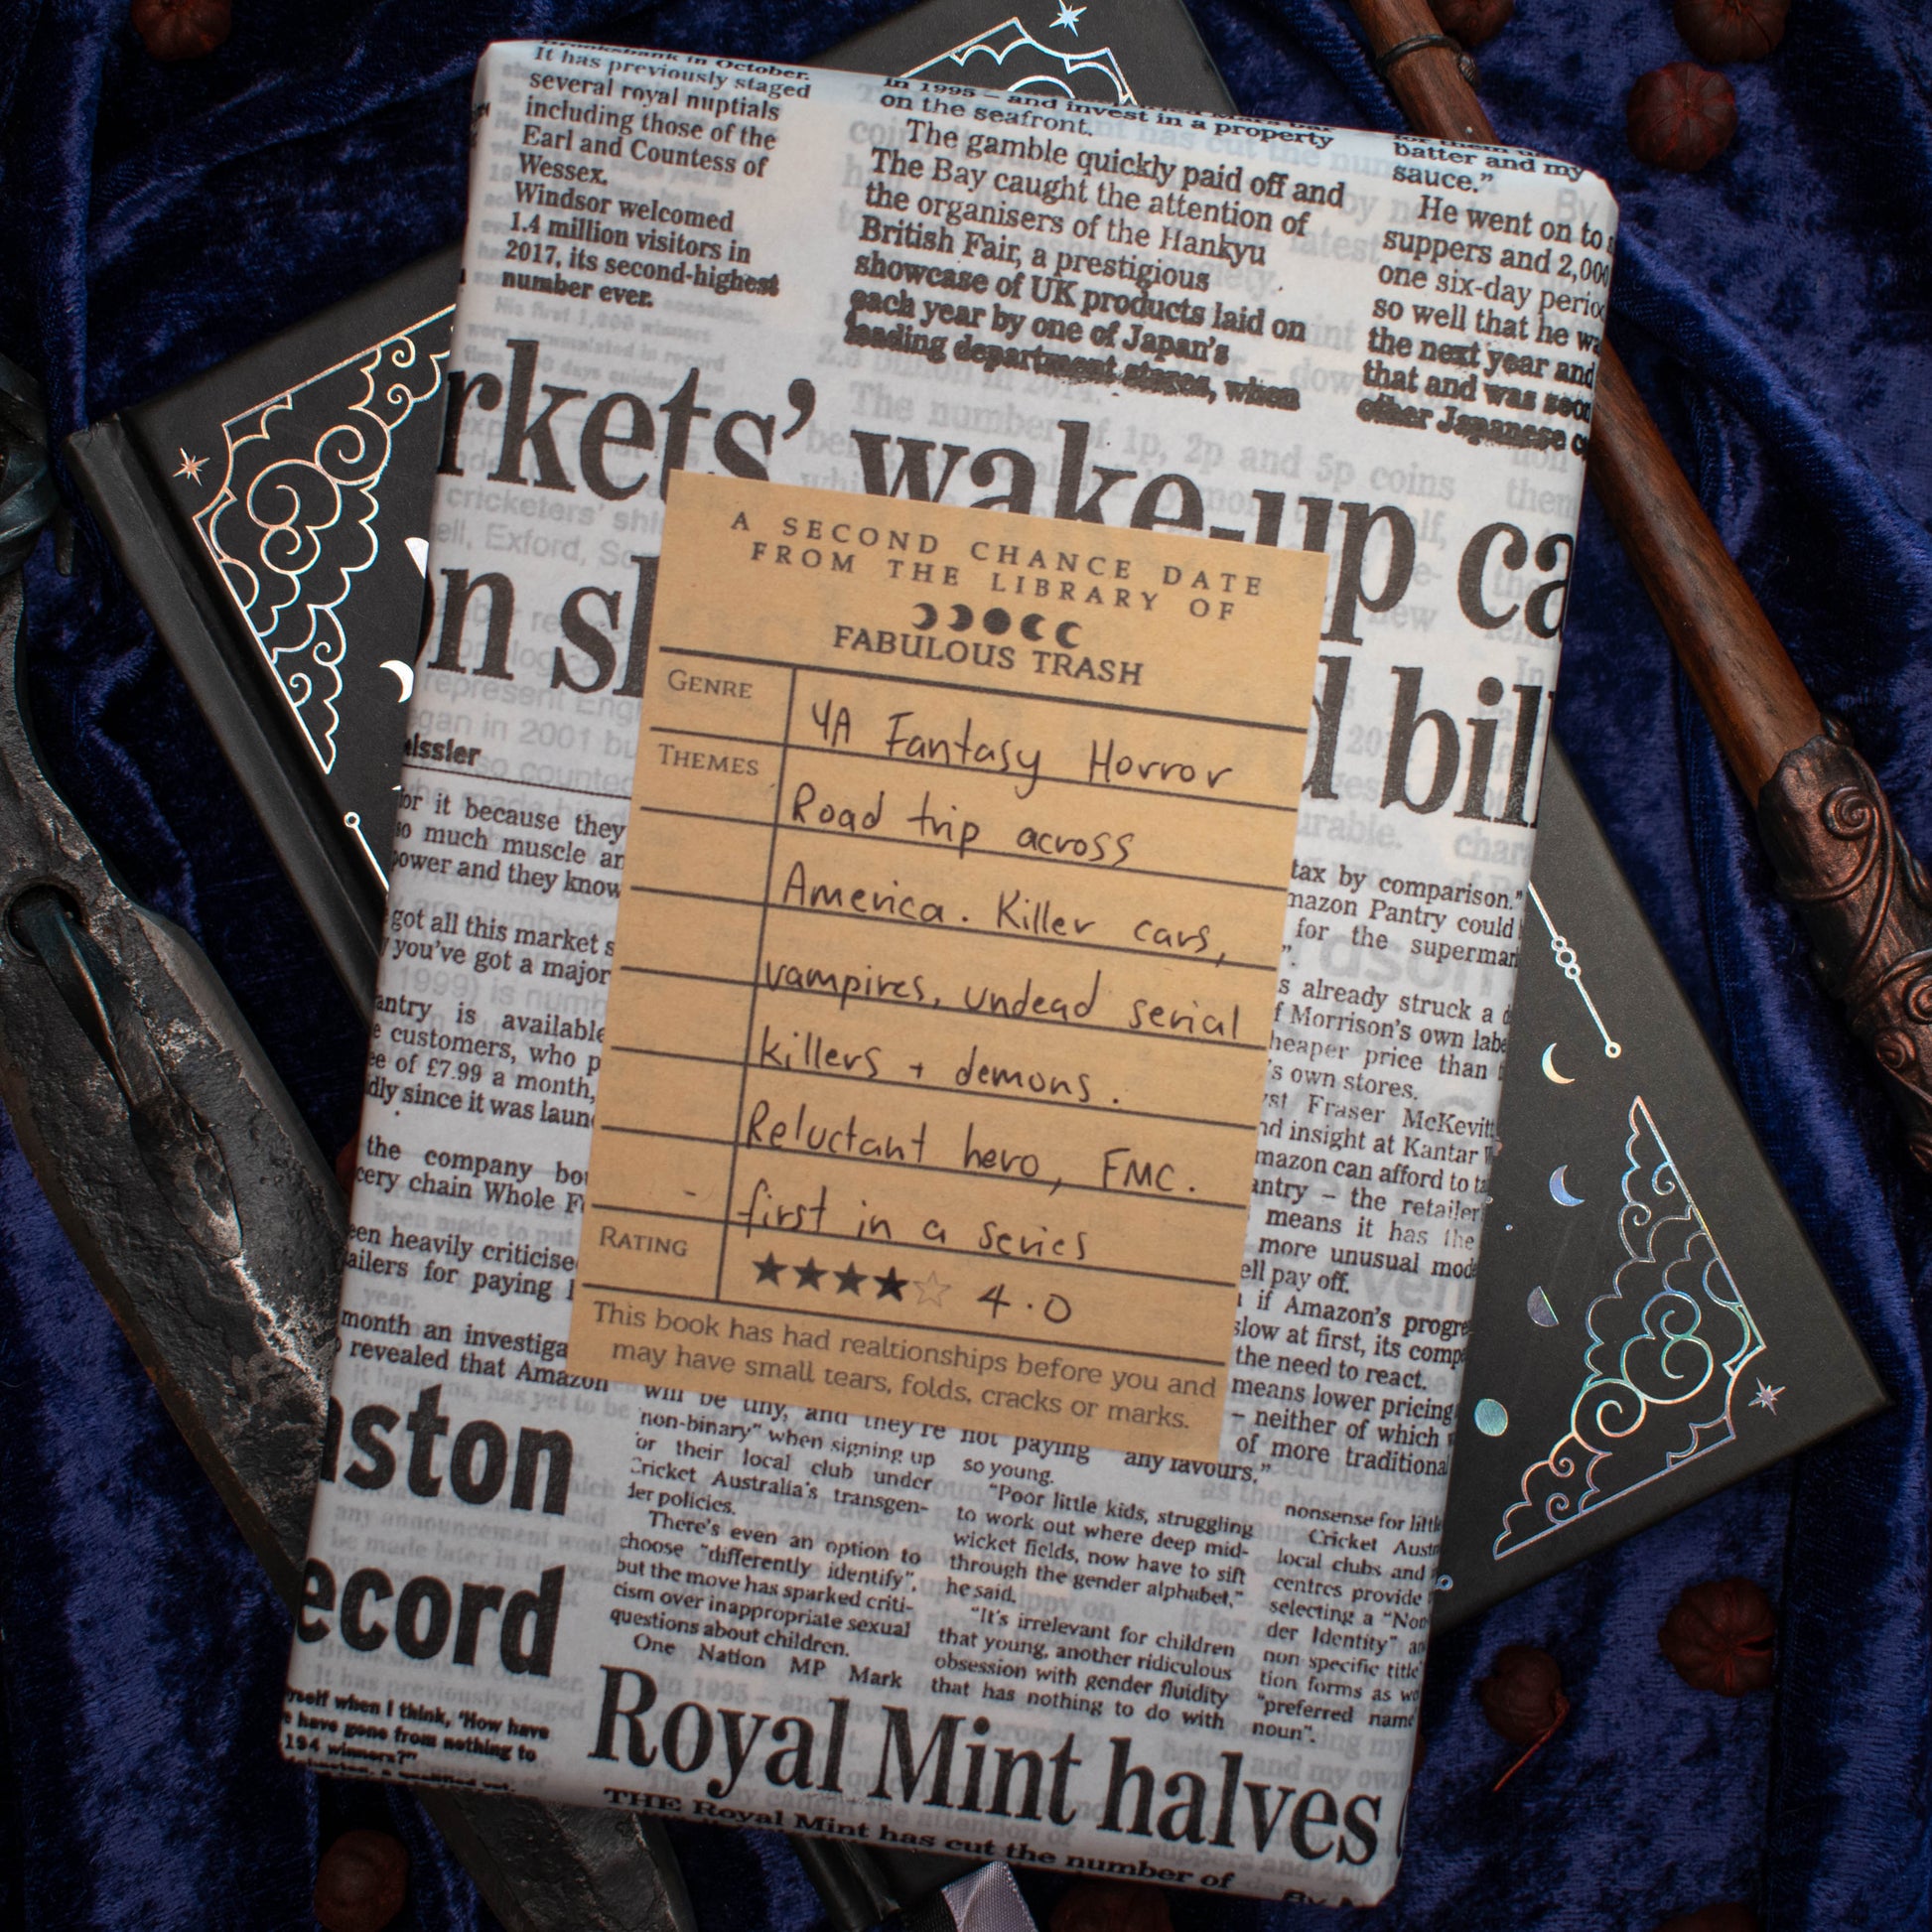 Brooksbank in October.
It has previously staged
several royal nuptials
including those of the
Earl and Countess of
Wessex.
Windsor welcomed
1.4 million visitors in
2017, its second-highest
number ever.
in 1995 – and invest in a property
on the seafront.
The gamble quickly paid off and
The Bay caught the attention of
the organisers of the Hankyu
British Fair, a prestigious
showcase of UK products laid on
each year by one of Japan's
leading department stores, when
batter and my
sauce."
He went on to
suppers and 2,000
one six-day period
so well that he wa
the next year and
that and was soon
other Japanese c
rkets' wake-up ca
n sl
d bill
A SECOND CHANCE DATE
FROM THE LIBRARY OF
FABULOUS TRASH
GENRE YA Fantasy Horror
THEMES Road trip across
America. Killer cars,
vampires, undead serial
killers + demons.
Reluctant hero, FMC.
first in a series
RATING ★★★★☆ 4.0
This book has had realtionships before you and
may have small tears, folds, cracks or marks.
eissler
or it because they
so much muscle an
power and they know
got all this market s
y you've got a major
antry is available
e customers, who p
ee of £7.99 a month,
dly since it was laun
the company bou
cery chain Whole F
een heavily criticise
ailers for paying l
month an investiga
revealed that Amazon
tax by comparison."
mazon Pantry could
for the supermar
".
s already struck a d
f Morrison's own labe
heaper price than
's own stores.
yst Fraser McKevitt
nd insight at Kantar W
mazon can afford to ta
antry – the retailer
means it has the
more unusual mod
ell pay off.
if Amazon's progre
slow at first, its comp
the need to react.
means lower pricing
– neither of which
of more traditional
aston
ecord
yself when I think, 'How have
have gone from nothing to
194 winners?"
will be tiny, and they're not paying any favours."
non-binary" when signing up
or their local club under
Cricket Australia's transgen-
der policies.
There's even an option to
choose "differently identify",
but the move has sparked criti-
cism over inappropriate sexual
questions about children.
One Nation MP Mark
so young.
"Poor little kids, struggling
to work out where deep mid-
wicket fields, now have to sift
through the gender alphabet,"
he said.
"It's irrelevant for children
that young, another ridiculous
obsession with gender fluidity
that has nothing to do with
nonsense for little
Cricket Austr
local clubs and
centres provide
selecting a "Non
der Identity" an
non specific title
tion forms as wo
"preferred name
noun".
Royal Mint halves
THE Royal Mint has cut the number of